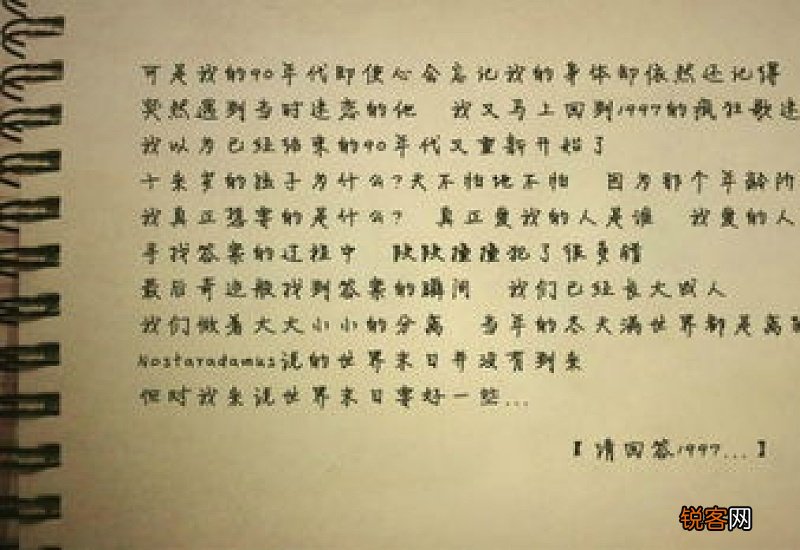 可是我的90年代即使心会忘记我的身体却依然还记得
突然遇到当时迷恋的他 我又马上回到1997的疯狂歌迷
我以为已经结束的90年代又重新开始了
十来岁的孩子为什么?天不怕地不怕 因为那个年龄所
我真正想要的是什么? 真正爱我的人是谁 我爱的人
寻找答案的过程中 跌跌撞撞犯了很多错
最后奇迹般找到答案的瞬间 我们已经长大成人
我们做着大大小小的分离 当年的冬天满世界都是离
Nostaradamus说的世界末日并没有到来
但对我来说世界末日要好一些...
【请回答1997...】
锐客网